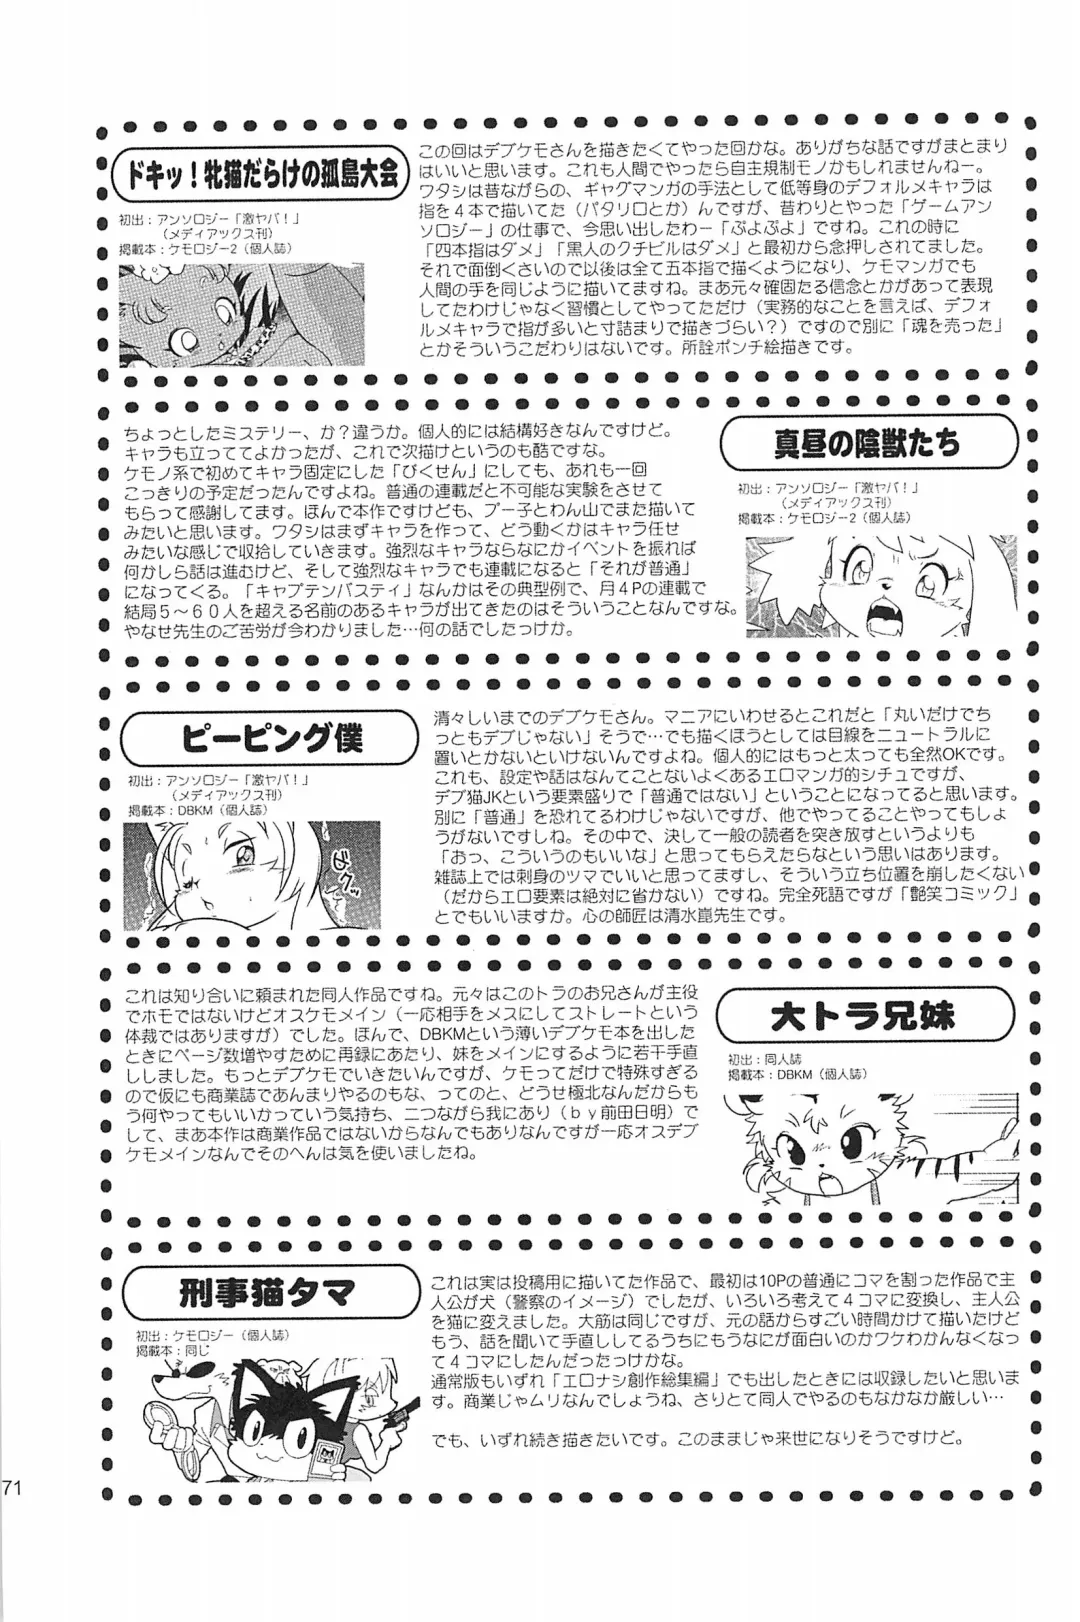 ドキッ！牝猫だらけの孤島大会
初出：アンソロジー「激ヤバ！」
（メディアックス刊）
掲載本：ケモロジー2（個人誌）
この回はデブケモさんを描きたくてやった回かな。ありがちな話ですがまとまり
はいいと思います。これも人間でやったら自主規制モノかもしれませんねー。
ワタシは昔ながらの、ギャグマンガの手法として低等身のデフォルメキャラは
指を４本で描いてた（パタリロとか）んですが、昔わりとやった「ゲームアン
ソロジー」の仕事で、今思い出したわー「ぷよぷよ」ですね。これの時に
「四本指はダメ」「黒人のクチビルはダメ」と最初から念押しされてました。
それで面倒くさいので以後は全て五本指で描くようになり、ケモマンガでも
人間の手を同じように描いてますね。まあ元々確固たる信念とかがあって表現
してたわけじゃなく習慣としてやってただけ（実務的なことを言えば、デフォ
ルメキャラで指が多いと寸詰まりで描きづらい？）ですので別に「魂を売った」
とかそういうこだわりはないです。所詮ポンチ絵描きです。
真昼の陰獣たち
初出：アンソロジー「激ヤバ！」
（メディアックス刊）
掲載本：ケモロジー2（個人誌）
ちょっとしたミステリー、か？違うか。個人的には結構好きなんですけど。
キャラも立っててよかったが、これで次描けというのも酷ですな。
ケモノ系で初めてキャラ固定にした「びくせん」にしても、あれも一回
こっきりの予定だったんですよね。普通の連載だと不可能な実験をさせて
もらって感謝してます。ほんで本作ですけども、プー子とわん山でまた描いて
みたいと思います。ワタシはまずキャラを作って、どう動くかはキャラ任せ
みたいな感じで収拾していきます。強烈なキャラならなにかイベントを振れば
何かしら話は進むけど、そして強烈なキャラでも連載になると「それが普通」
になってくる。「キャプテンバスティ」なんかはその典型例で、月４Pの連載で
結局５～６０人を超える名前のあるキャラが出てきたのはそういうことなんですな。
やなせ先生のご苦労が今わかりました…何の話でしたっけか。
ピーピング僕
初出：アンソロジー「激ヤバ！」
（メディアックス刊）
掲載本：DBKM（個人誌）
びクッ
清々しいまでのデブケモさん。マニアにいわせるとこれだと「丸いだけでち
っともデブじゃない」そうで…でも描くほうとしては目線をニュートラルに
置いとかないといけないんですよね。個人的にはもっと太っても全然OKです。
これも、設定や話はなんてことないよくあるエロマンガ的シチュですが、
デブ猫JKという要素盛りで「普通ではない」ということになってると思います。
別に「普通」を恐れてるわけじゃないですが、他でやってることやってもしょ
うがないですしね。その中で、決して一般の読者を突き放すというよりも
「おっ、こういうのもいいな」と思ってもらえたらなという思いはあります。
雑誌上では刺身のツマでいいと思ってますし、そういう立ち位置を崩したくない
（だからエロ要素は絶対に省かない）ですね。完全死語ですが「艶笑コミック」
とでもいいますか。心の師匠は清水崑先生です。
大トラ兄妹
初出：同人誌
掲載本：DBKM（個人誌）
これは知り合いに頼まれた同人作品ですね。元々はこのトラのお兄さんが主役
でホモではないけどオスケモメイン（一応相手をメスにしてストレートという
体裁ではありますが）でした。ほんで、DBKMという薄いデブケモ本を出した
ときにページ数増やすために再録にあたり、妹をメインにするように若干手直
ししました。もっとデブケモでいきたいんですが、ケモってだけで特殊すぎる
ので仮にも商業誌であんまりやるのもな、ってのと、どうせ極北なんだからも
う何やってもいいかっていう気持ち、二つながら我にあり（ｂｙ前田日明）で
して、まあ本作は商業作品ではないからなんでもありなんですが一応オスデブ
ケモメインなんでそのへんは気を使いましたね。
刑事猫タマ
初出：ケモロジー（個人誌）
掲載本：同じ
これは実は投稿用に描いてた作品で、最初は10Pの普通にコマを割った作品で主
人公が犬（警察のイメージ）でしたが、いろいろ考えて４コマに変換し、主人公
を猫に変えました。大筋は同じですが、元の話からすごい時間かけて描いたけど
もう、話を聞いて手直ししてるうちにもうなにが面白いのかワケわかんなくなっ
て４コマにしたんだったっけかな。
通常版もいずれ「エロナシ創作総集編」でも出したときには収録したいと思いま
す。商業じゃムリなんでしょうね、さりとて同人でやるのもなかなか厳しい…
でも、いずれ続き描きたいです。このままじゃ来世になりそうですけど。
71